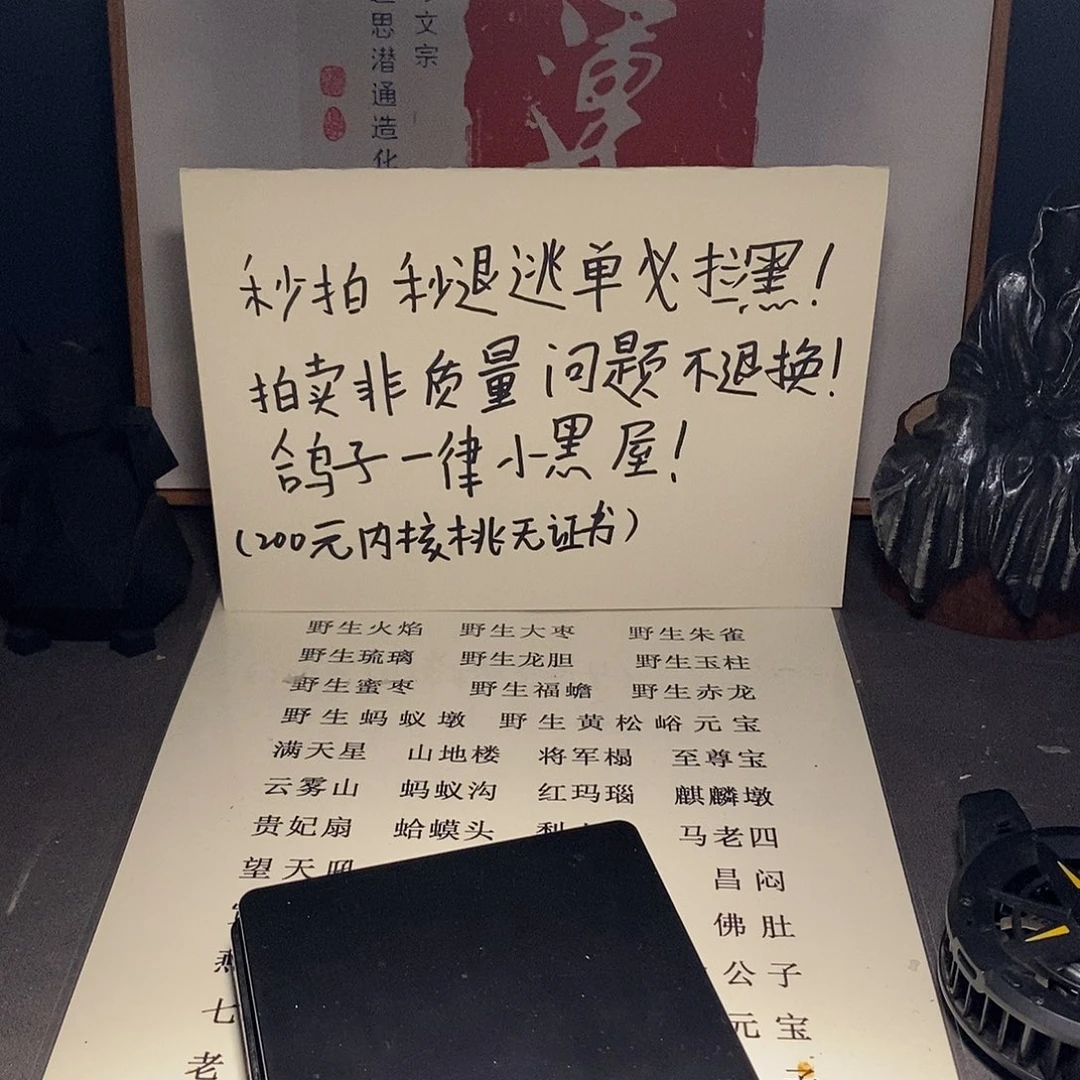 文宗
思潜通造化
秒拍秒退逃单必拉黑！
拍卖非质量问题不退换！
鸽子一律小黑屋！
（200元内核桃无证书）
野生火焰 野生大枣 野生朱雀
野生琉璃 野生龙胆 野生玉柱
野生蜜枣 野生福蟾 野生赤龙
野生蚂蚁墩 野生黄松峪元宝
满天星 山地楼 将军榻 至尊宝
云雾山 蚂蚁沟 红玛瑙 麒麟墩
贵妃扇 蛤蟆头 马老四
望天吼 昌闷
佛肚
公子
七 元宝
老